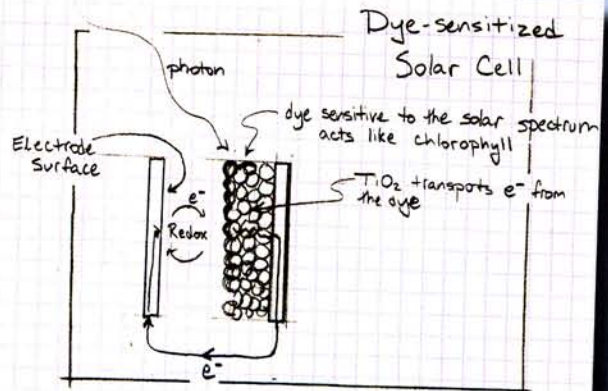 Dye-sensitized
Solar Cell
photon
dye sensitive to the solar spectrum
acts like chlorophyll
Electrode
Surface
TiO2 transpots e- from
the dye
e-
Redox
e-